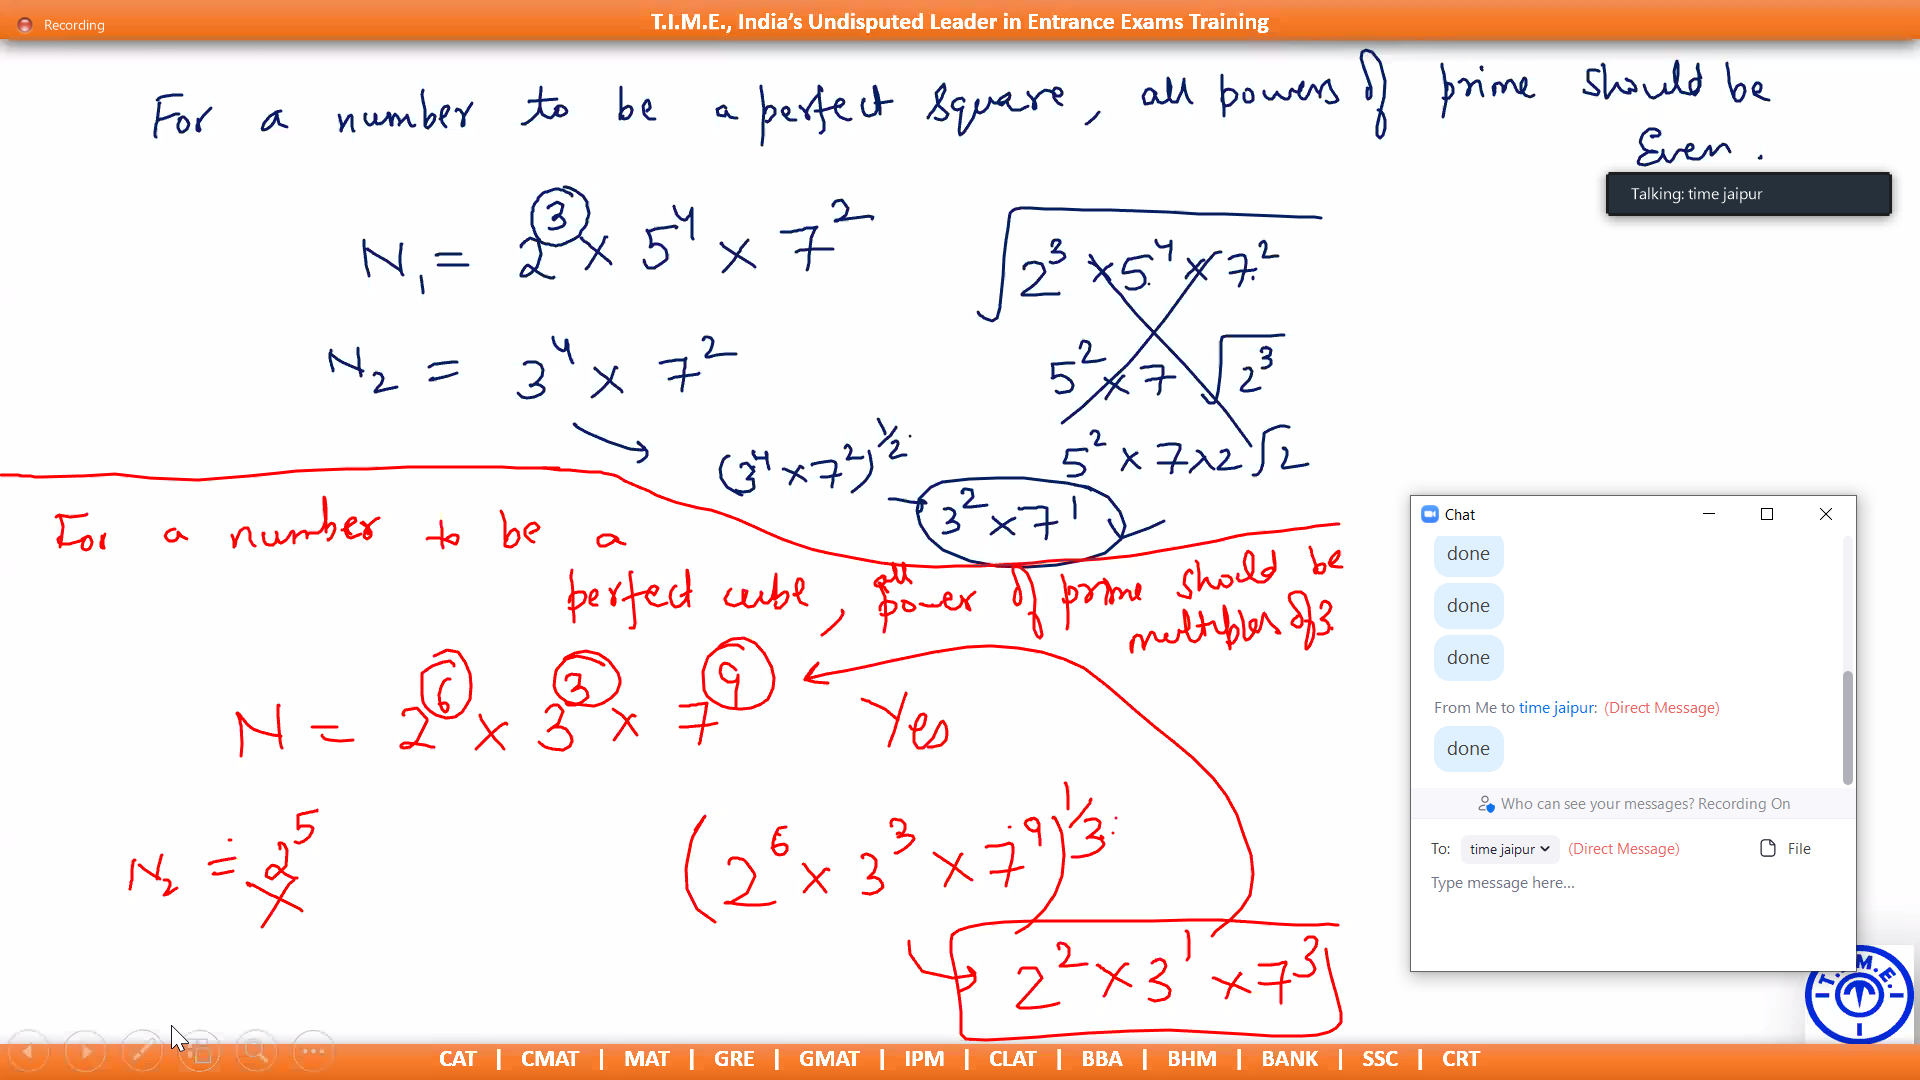 Recording
T.I.M.E., India's Undisputed Leader in Entrance Exams Training
For a number to be a perfect square, all powers of prime should be
Even.
Talking: time jaipur
N₁ = 2³ × 5⁴ × 7²
√(2³ × 5⁴ × 7²)
N₂ = 3⁴ × 7²
5² × 7 √2³
(3⁴ × 7²)^1/2
5² × 7 × 2 √2
3² × 7¹
For a number to be a
perfect cube, all power of prime should be
multiples of 3
N = 2⁶ × 3³ × 7⁹ Yes
N₂ = 2⁵
(2⁶ × 3³ × 7⁹)^1/3
2² × 3¹ × 7³
Chat
done
done
done
From Me to time jaipur: (Direct Message)
done
Who can see your messages? Recording On
To: time jaipur (Direct Message) File
Type message here...
T.I.M.E.
CAT | CMAT | MAT | GRE | GMAT | IPM | CLAT | BBA | BHM | BANK | SSC | CRT